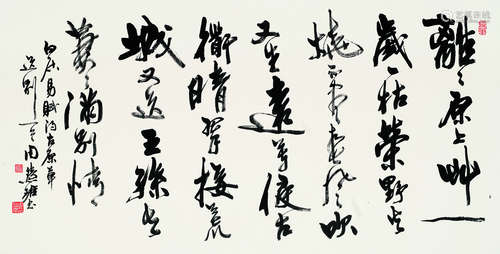 離離原上艸一
歲一枯榮野火
燒不盡春風吹
又生遠芳侵古
衟晴翠接荒
城又送王孫去
萋萋滿別情
白居易賦得古原草
送別一首周慧珺書